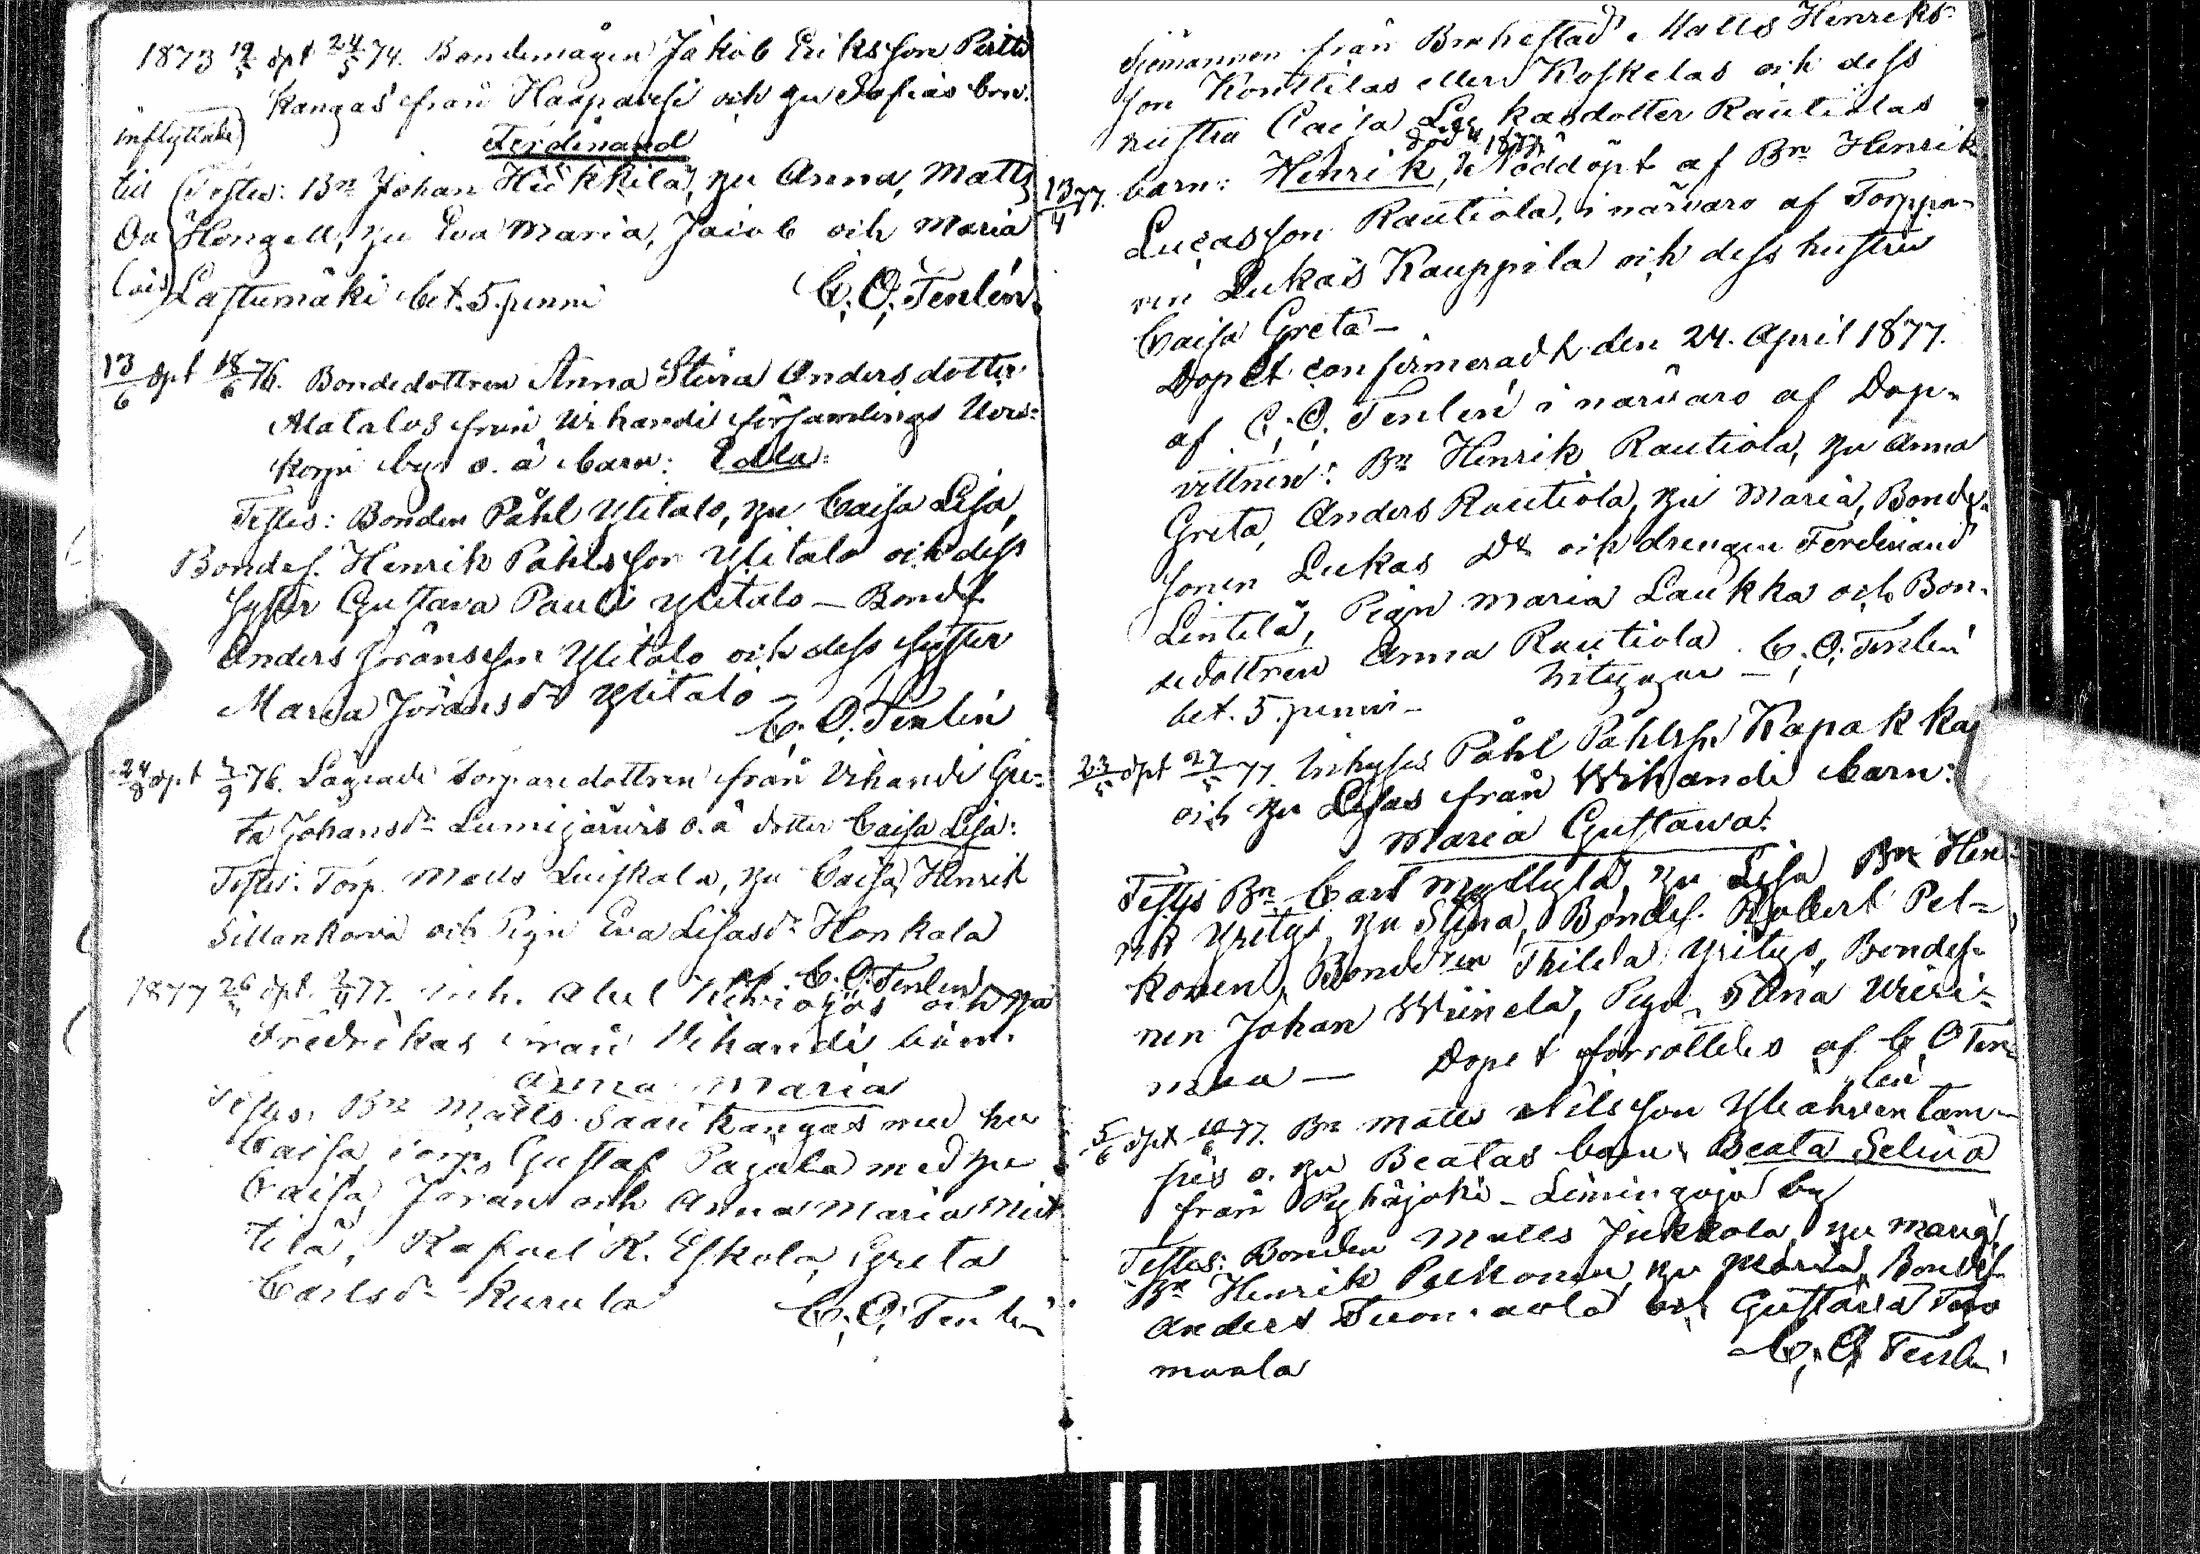 1873 19/5 dpt 24/5 74. Bondemågen Jakob Eriksson Pertti
kangas från Haapavesi och hu Sofias barn.
inflyttade) Ferdinand
till (Testes: Bn Johan Hickkilä, hu Anna, Matts
Ou Hongell, hu Eva Maria, Jacob och Maria
lais) Lastumäki bet. 5 penni C. O. Tenlén.
13/6 dpt 18/6 76. Bondedottren Anna Stina Andersdotter
Alatalos från Vihandi församlings
korpi by o. ä barn: Edla:
Testes: Bonden Påhl Ylitalo, hu Caisa Lisa,
Bondes. Henrik Påhlsson Ylitalo och dess
syster Gustava Pauli Ylitalo — Bondes.
Anders Jöransson Ylitalo och dess syster
Maria Jöransdr Ylitalo —
C. O. Tenlén
24/8 dpt 3/9 76. Lägrade Torparedottren från Vihandi Gre=
ta Johansdr Lumijärvis o. ä dotter Caisa Lisa:
Testes: Torp. Matts Luiskala, hu Caisa, Henrik
Sillankorva och Pigu Eva Lisasdr Honkala
C. O. Tenlén
1877 26/ dpt. 2/4 77. inh. Abel Kiviojas och hu
Fredrikas från Vihandi barn.
Anna Maria
Testes: Bn Matts Saarikangas med hu
Caisa, torp. Gustaf Pajala med hu
Caisa, Jöran och Anna Maria Niit
tilä, Rafael R. Eskola, Greta
Carlsdr Kurula C. O. Tenlén
Sjömannen från Brahestad Matts Henriks=
son Konttilas eller Koskelas och dess
hustru Caisa Lukasdotter Rautiolas
död 1877.
13/4 77. barn: Henrik, Nöddöpt af Bn Henrik
Lucasson Rautiola, i närvaro af Torppa=
ren Lukas Kauppila och dess hustru
Caisa Greta —
Dopet confirmeradt den 24. April 1877.
af C. O. Tenlén i närvaro af Dop=
vittnen: Bn Henrik Rautiola, hu Anna
Greta, Anders Rautiola, hu Maria, Bonde=
sonen Lukas Do och drengen Ferdinand
Lintelä, Pigan Maria Laukka och Bon=
dedottren Anna Rautiola
bet. 5 penni — C. O. Tenlén
23/5 dpt 27/5 77. Inhyses Påhl Påhlsson Kapakka
och hu Lisas från Wihandi barn:
Maria Gustawa:
Testes Bn Carl Myllylä, hu Lisa Bn Hen=
rik Yritys, hu Stina, Bondes. Robert Pel=
konen, Thilda Yritys, Bondes=
nen Johan Wiinela, Pigu Stina
maa — Dopet förrättades af C. O. Ten=
lén —
5/6 dpt 10/6 77. Bn Matts Nilsson Yliahvenlam=
pis o. hu Beatas barn Beata Selina
från Pyhäjoki — Limingoja by
Testes: Bonden Matts Jukkola, hu Maria,
Bn Henrik Pelkonen, hu Maria, Bondes.
Anders Tuomaala och Gustava Tuo
maala C. O. Tenlén